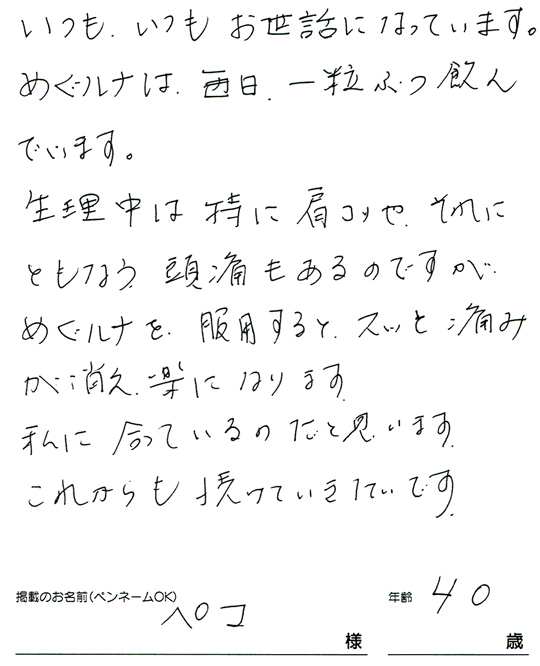 いつも、いつも お世話になっています。
めぐルナは、毎日、一粒ずつ飲ん
でいます。
生理中は特に肩コリや、それに
ともなう、頭痛もあるのですが、
めぐルナを、服用すると、スッと痛み
が消え、楽になります。
私に合っているのだと思います。
これからも続けていきたいです。
掲載のお名前(ペンネームOK) ペコ 様 年齢 40 歳